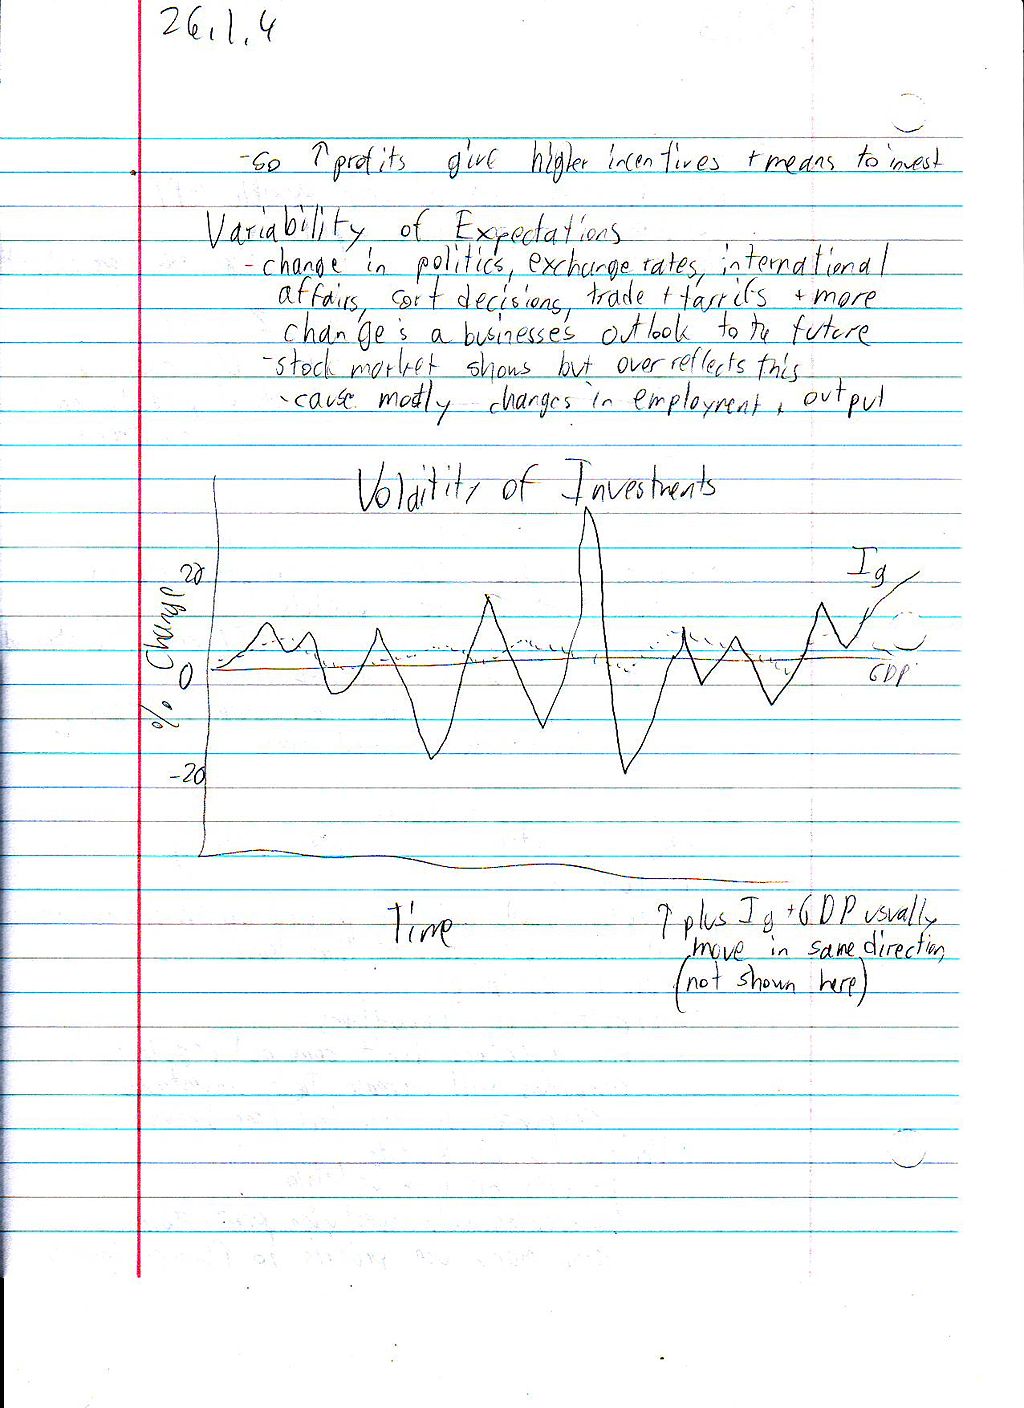 26.1.4
-so ↑ profits give higher incentives + means to invest
Variability of Expectations
-change in politics, exchange rates, international
affairs, cort decisions, trade + tarrifs + more
change's a businesses outlook to the future
-stock market shows but over reflects this
-cause mostly changes in employment + output
Volatility of Investments
Ig
20
% Change
0
GDP
-20
Time
↑ plus Ig + GDP usually
move in same direction
(not shown here)